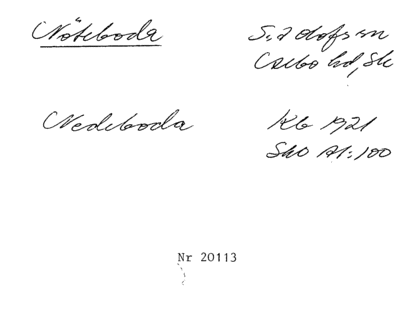 Nöteboda S. Adolfs sn
Oxie hd, Sk
Nedeboda Kb 1921
SkO A1:100
Nr 20113